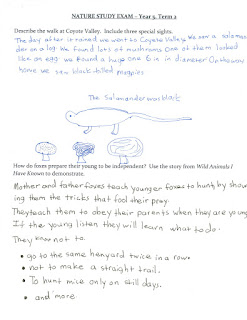 NATURE STUDY EXAM – Year 3, Term 2
Describe the walk at Coyote Valley. Include three special sights.
The day after it rained we went to Coyote Valley. We saw a salaman
der on a log. We found lots of mushrooms One of them looked
like an egg we found a huge one 6 in in diameter On the way
home we saw black-tailed magpies
The Salamander was black
How do foxes prepare their young to be independent? Use the story from Wild Animals I
Have Known to demonstrate.
Mother and father foxes teach younger foxes to hunt, by show
ing them the tricks that fool their pray.
They teach them to obey their parents when they are young
If the young listen they will learn what to do.
They know not to
• go to the same henyard twice in a row.
• not to make a straight trail.
• To hunt mice only on still days.
• and more